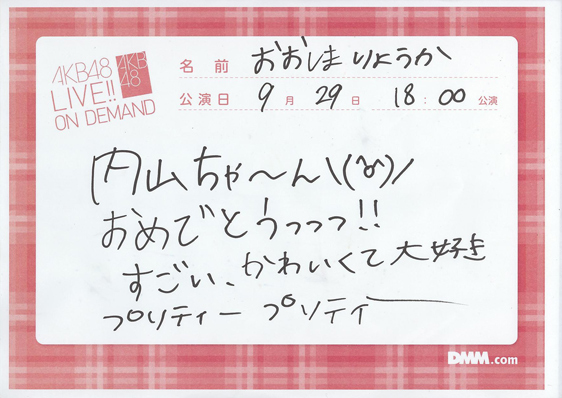 AKB48
LIVE!!
ON DEMAND
AKB
48
名前 おおしまりょうか
公演日 9月29日 18:00公演
内山ちゃ〜ん\(^o^)/
おめでとうっっっ!!
すごい、かわいくて大好き
プリティー プリティー
DMM.com